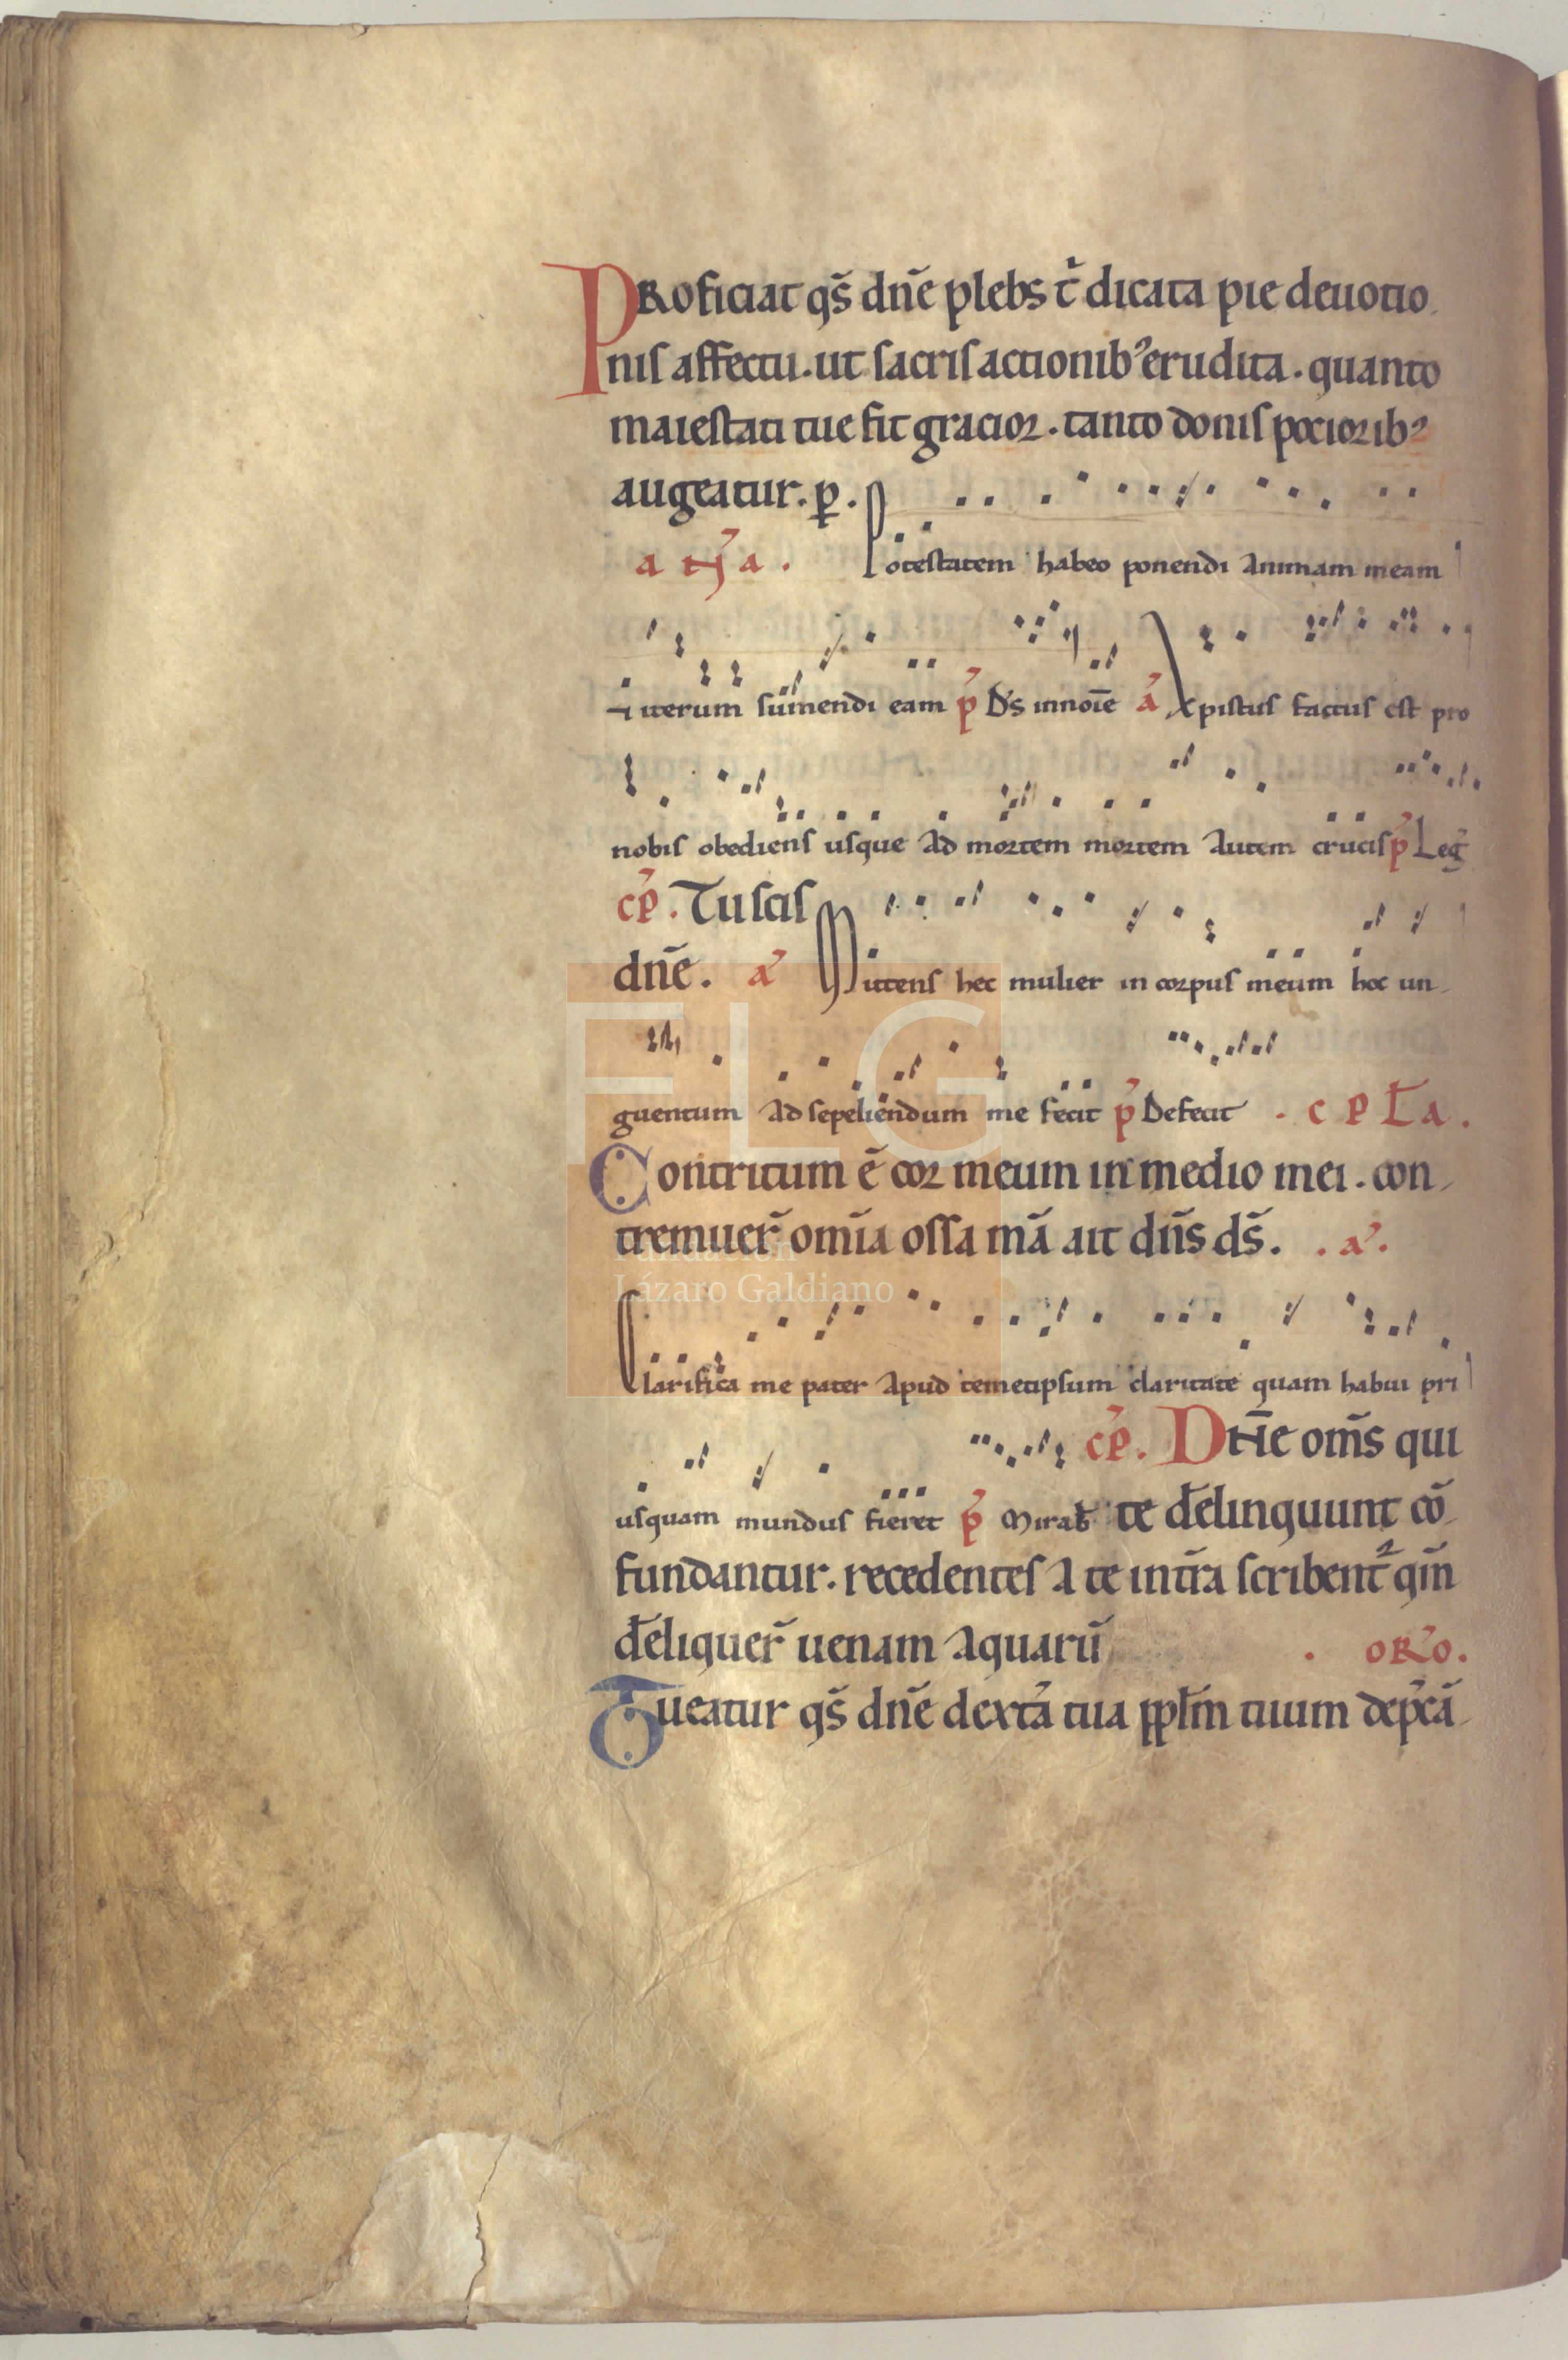 PRoficiat qs̄ dn̄e plebs t̄ dicata pie deuotio
nis affectu. ut sacris actionib; erudita. quanto
maiestati tue fit gracior. tanto donis pociorib;
augeatur. p̱.
a Ꞥ a. Potestatem habeo ponendi animam meam
⁊ iterum sumendi eam p̄ Ds̄ innoīe a Xpistus factus est pro
nobis obediens usque ad mortem mortem autem crucis p̄ Leḡ
cp̄. Tu scis
dn̄e. a Mittens hec mulier in corpus meum hoc un
guentum ad sepeliendum me fecit p̄ Defecit . c p ł a.
Contritum ē cor meum in medio mei. con
tremuer̄ omīa ossa mā ait dn̄s ds̄. . a.
Clarifica me pater apud temetipsum claritate quam habui pri
cp̄. Dn̄e om̄s qui
usquam mundus fieret p̄ Mirab̄ te đelinquunt cō
fundantur. recedentes a te in tr̄a scribent̄ qm̄
đeliquer̄ uenam aquarū
. oRo.
Tueatur qs̄ dn̄e dextā tua ppłm tuum dep̄cā
FLG
Fundación
Lázaro Galdiano